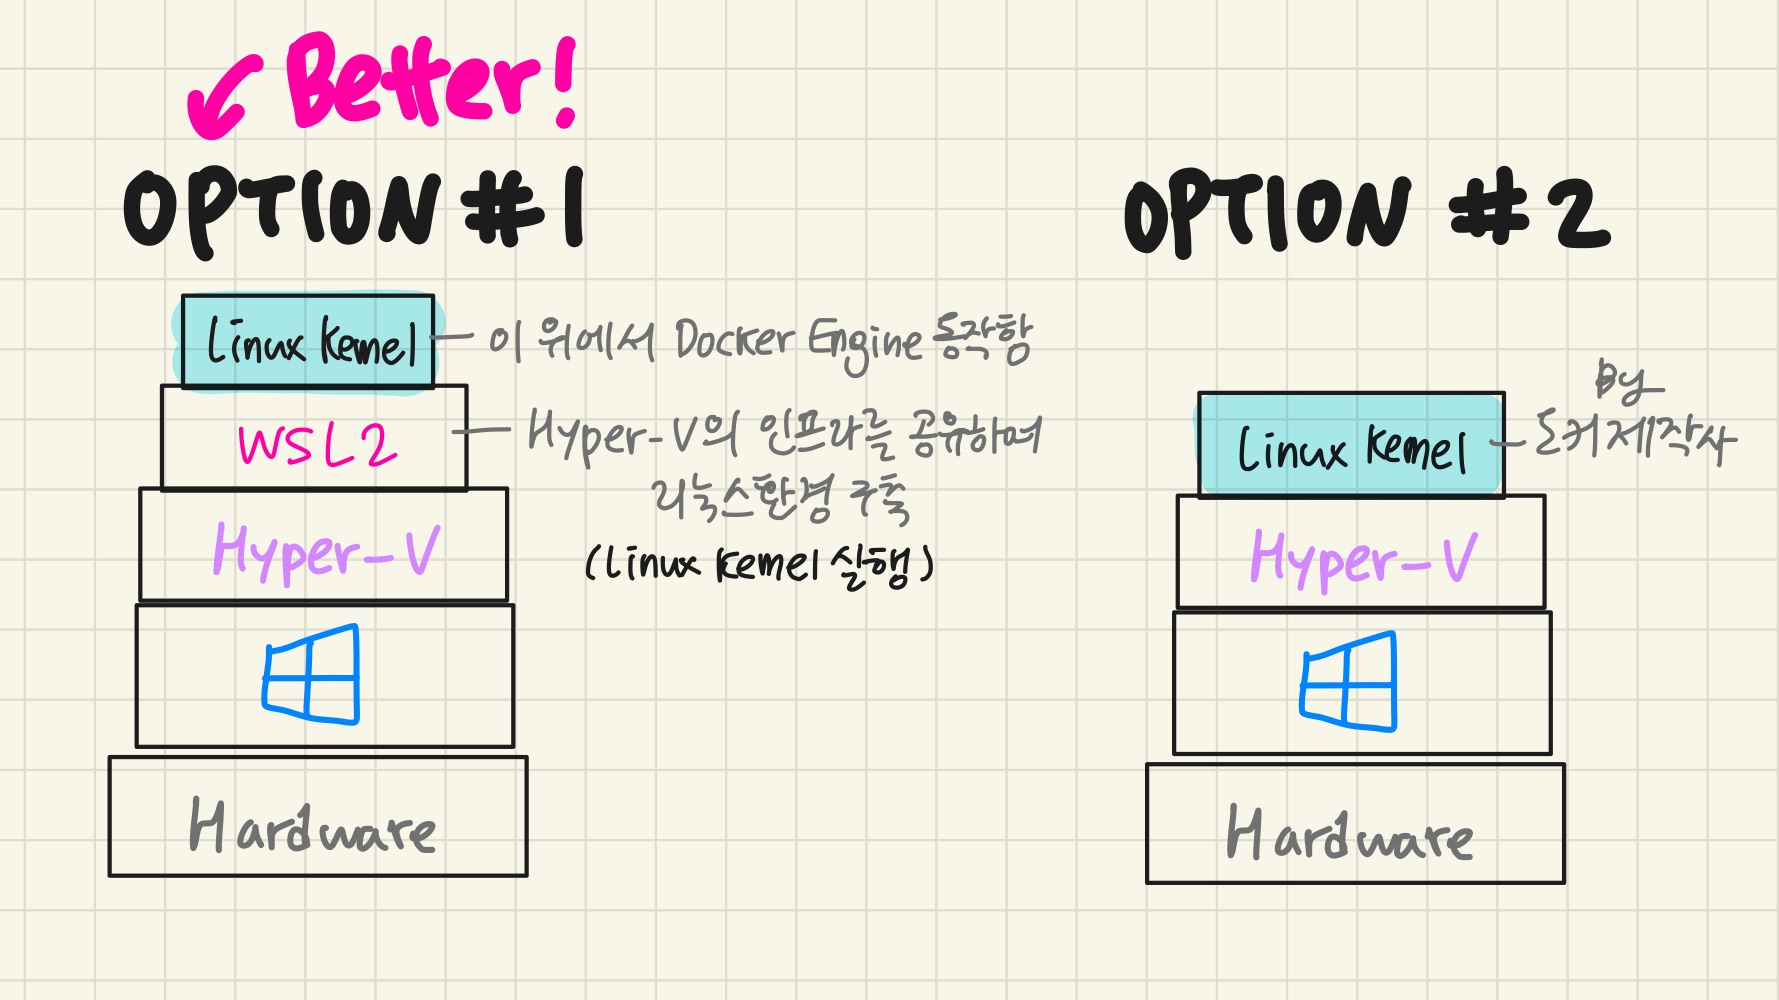 Better!
OPTION #1
Linux Kernel
이 위에서 Docker Engine 동작함
WSL2
Hyper-V의 인프라를 공유하며
리눅스환경 구축
(Linux Kernel 실행)
Hyper-V
Hardware
OPTION #2
Linux Kernel
By
도커 제작사
Hyper-V
Hardware